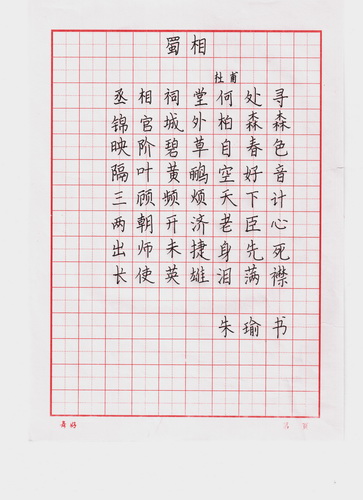 蜀相
杜甫
丞相祠堂何处寻
锦官城外柏森森
映阶碧草自春色
隔叶黄鹂空好音
三顾频烦天下计
两朝开济老臣心
出师未捷身先死
长使英雄泪满襟
朱瑜书